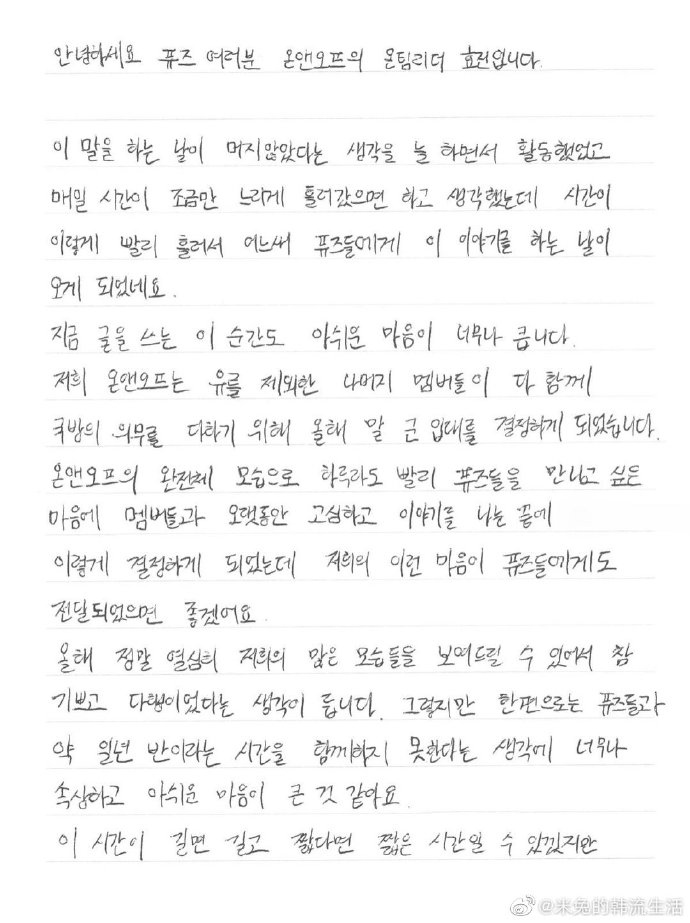 안녕하세요 퓨즈 여러분 온앤오프의 온팀리더 효진입니다.
이 말을 하는 날이 머지않았다는 생각을 늘 하면서 활동했었고
매일 시간이 조금만 느리게 흘러갔으면 하고 생각했는데 시간이
이렇게 빨리 흘러서 어느새 퓨즈들에게 이 이야기를 하는 날이
오게 되었네요.
지금 글을 쓰는 이 순간도 아쉬운 마음이 너무나 큽니다.
저희 온앤오프는 유를 제외한 나머지 멤버들이 다 함께
국방의 의무를 다하기 위해 올해 말 군 입대를 결정하게 되었습니다.
온앤오프의 완전체 모습으로 하루라도 빨리 퓨즈들을 만나고 싶은
마음에 멤버들과 오랫동안 고심하고 이야기를 나눈 끝에
이렇게 결정하게 되었는데 저희의 이런 마음이 퓨즈들에게도
전달되었으면 좋겠어요.
올해 정말 열심히 저희의 많은 모습들을 보여드릴 수 있어서 참
기쁘고 다행이었다는 생각이 듭니다. 그렇지만 한편으로는 퓨즈들과
약 일년 반이라는 시간을 함께하지 못한다는 생각에 너무나
속상하고 아쉬운 마음이 큰 것 같아요.
이 시간이 길면 길고 짧다면 짧은 시간일 수 있겠지만
@米兔的韩流生活